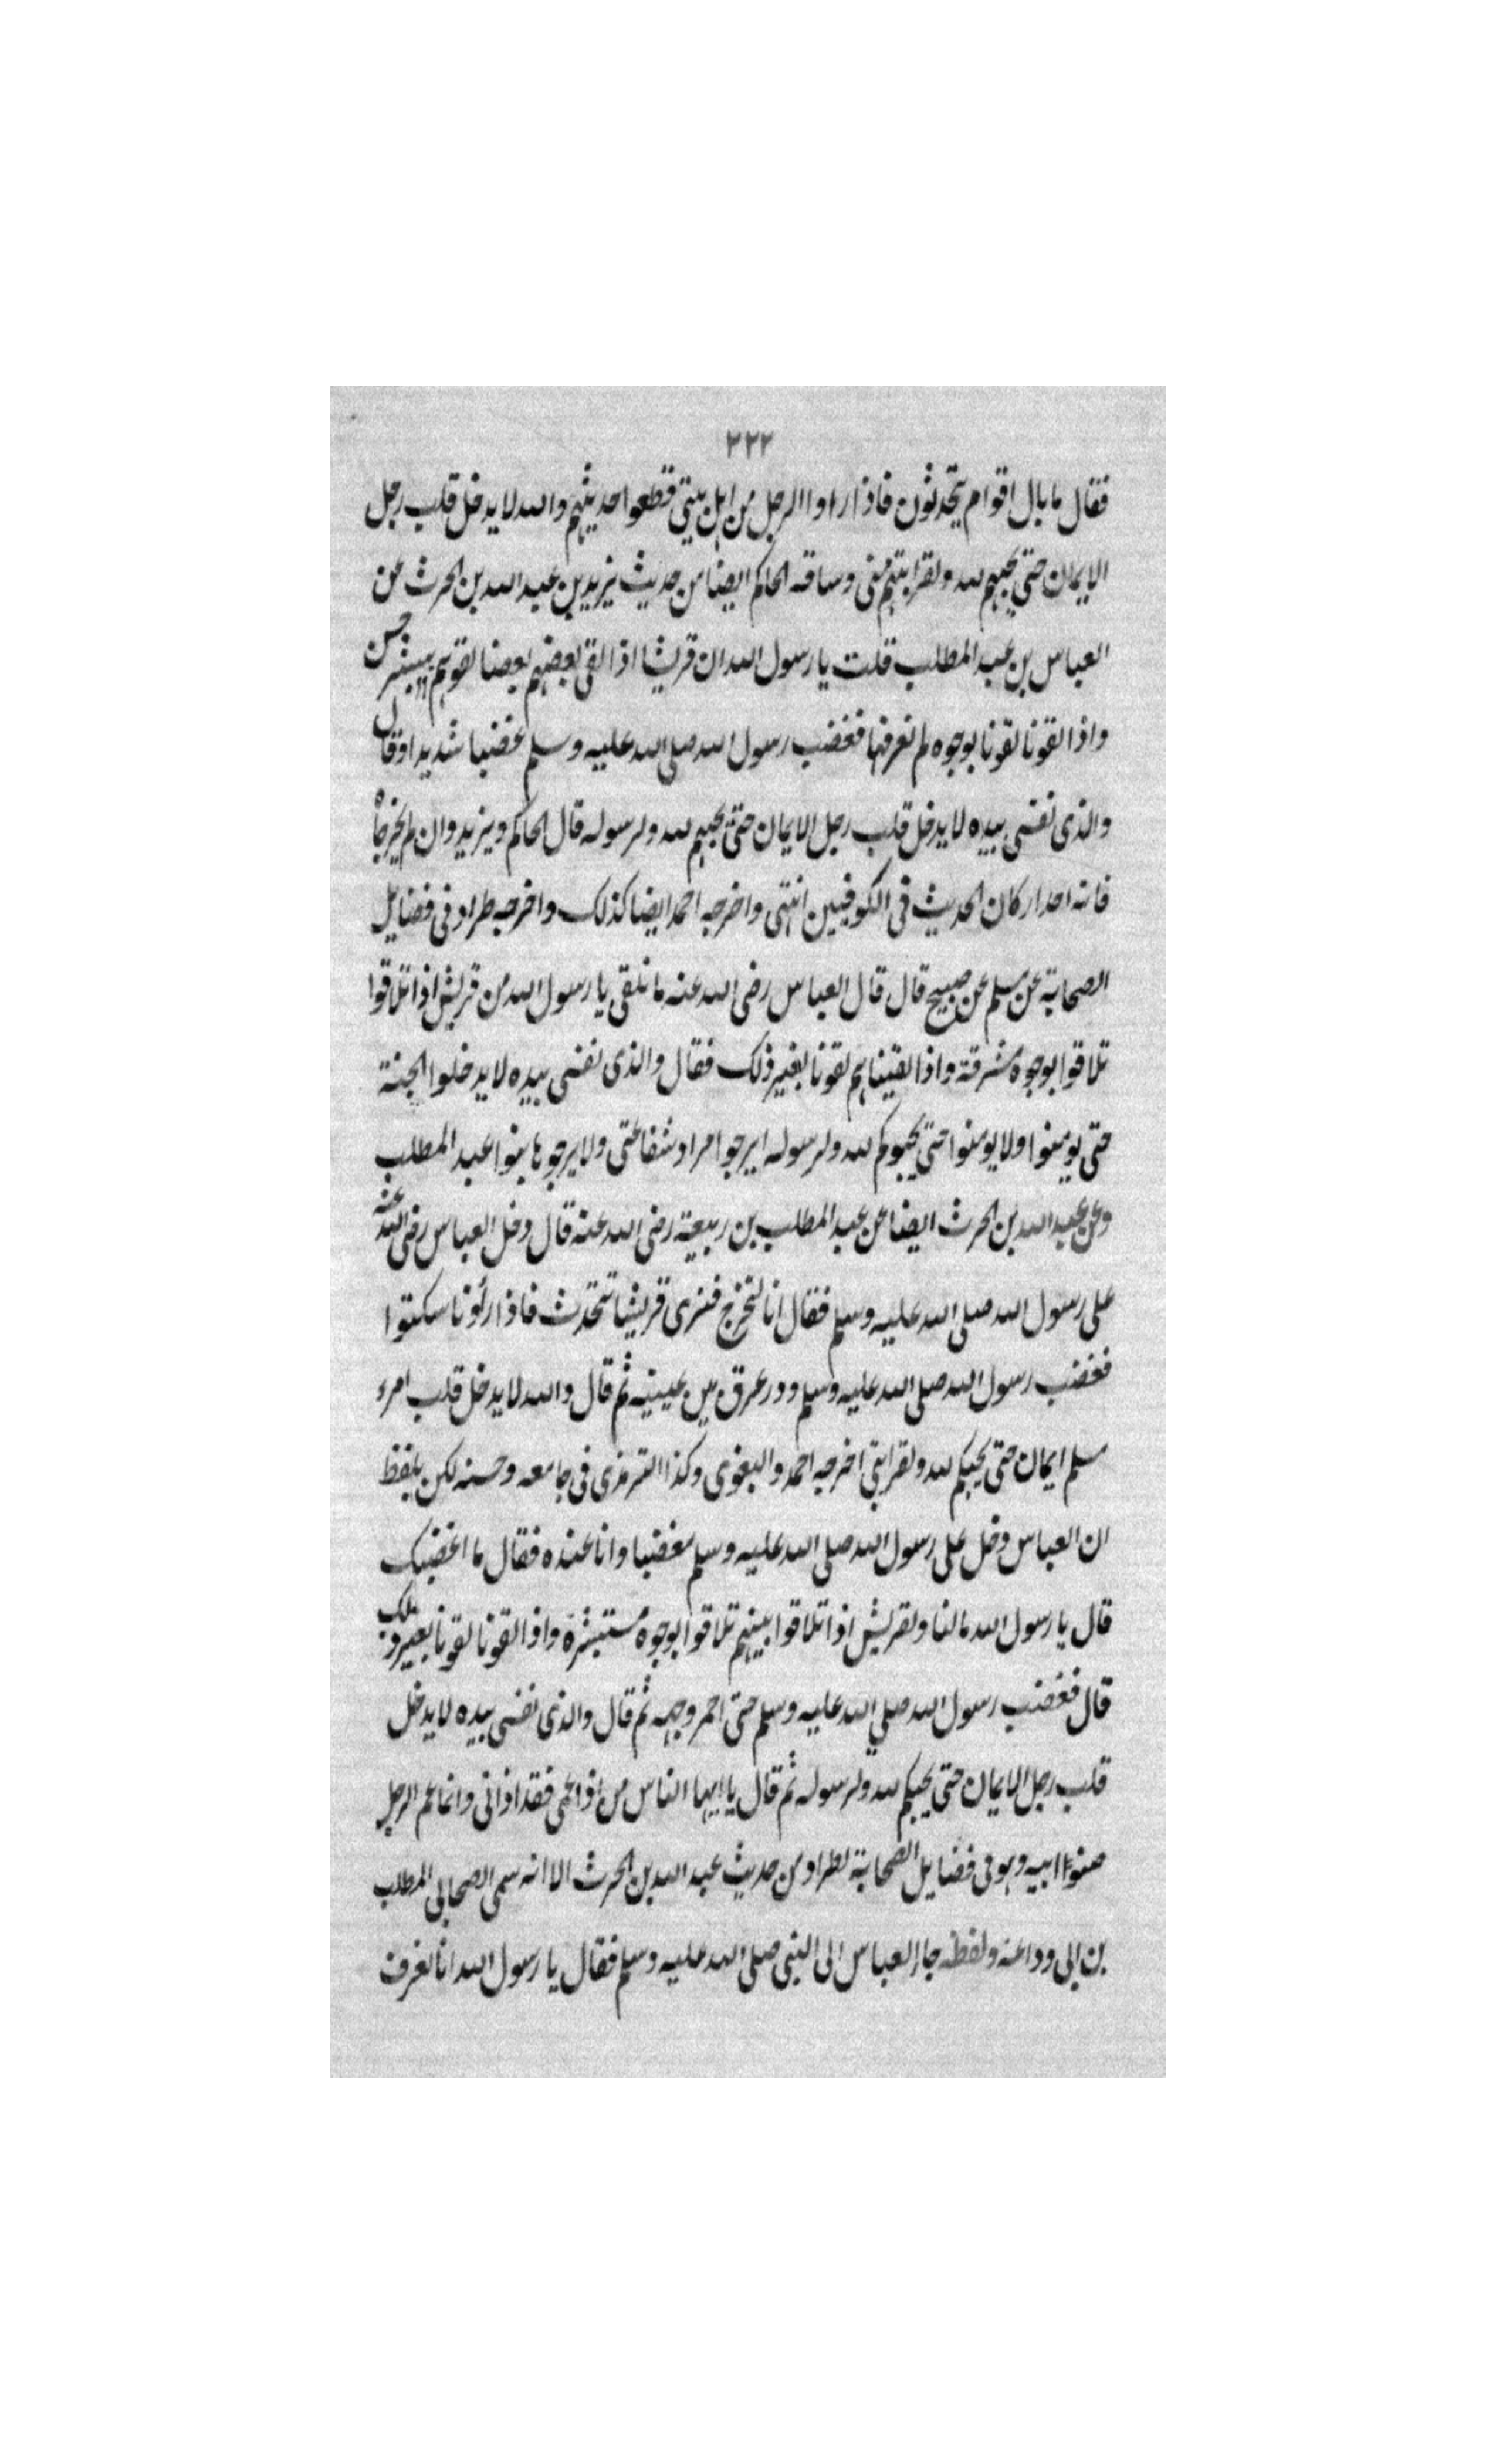 ٣٢٢
فقال ما بال اقوام يتحدثون فاذا راوا الرجل من اهل بيتى قطعوا حديثهم والله لا يدخل قلب رجل
الايمان حتى يحبهم لله ولقرابتهم منى وساقه الحاكم ايضا من حديث يزيد بن عبد الله بن الحرث عن
العباس بن عبد المطلب قلت يا رسول الله ان قريشا اذا لقى بعضهم بعضا لقوهم ببشر حسن
واذا لقونا لقونا بوجوه لم نعرفها فغضب رسول الله صلى الله عليه وسلم غضبا شديدا وقال
والذى نفسى بيده لا يدخل قلب رجل الايمان حتى يحبهم لله ولرسوله قال الحاكم ويزيد وان لم يخرجاه
فانه احد اركان الحديث فى الكوفيين انتهى واخرجه احمد ايضا كذلك واخرجه طراد فى فضايل
الصحابة عن مسلم عن صبيح قال قال العباس رضى الله عنه ما نلقى يا رسول الله من قريش اذا تلاقوا
تلاقوا بوجوه مشرقة واذا لقيناهم لقونا بغير ذلك فقال والذى نفسى بيده لا يدخلوا الجنة
حتى يومنوا ولا يومنوا حتى يحبوكم لله ولرسوله ايرجوا مراد شفاعتى ولا يرجوها بنوا عبد المطلب
وعن عبد الله بن الحرث ايضا عن عبد المطلب بن ربيعة رضى الله عنه قال دخل العباس رضى الله عنه
على رسول الله صلى الله عليه وسلم فقال انا لنخرج فنرى قريشا تتحدث فاذا رأونا سكتوا
فغضب رسول الله صلى الله عليه وسلم ودر عرق بين عينيه ثم قال والله لا يدخل قلب امرء
مسلم ايمان حتى يحبكم لله ولقرابتى اخرجه احمد والبغوى وكذا الترمذى فى جامعه وحسنه لكن بلفظ
ان العباس دخل على رسول الله صلى الله عليه وسلم مغضبا وانا عنده فقال ما اغضبك
قال يا رسول الله مالنا ولقريش اذا تلاقوا بينهم تلاقوا بوجوه مستبشرة واذا لقونا لقونا بغير ذلك
قال فغضب رسول الله صلى الله عليه وسلم حتى احمر وجهه ثم قال والذى نفسى بيده لا يدخل
قلب رجل الايمان حتى يحبكم لله ولرسوله ثم قال يا ايها الناس من اذا عمى فقد اذانى وانما عم الرجل
صنوا ابيه وهو فى فضايل الصحابة لطراد من حديث عبد الله بن الحرث الا انه سمى الصحابى المطلب
بن ابى وداعة ولفظه جاء العباس الى النبى صلى الله عليه وسلم فقال يا رسول الله انا لنعرف